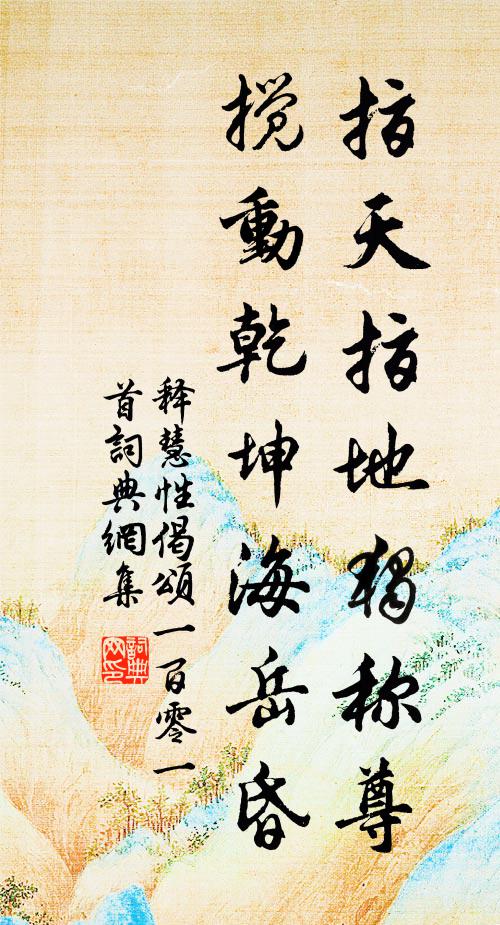 指天指地独称尊
搅動乾坤海岳昏
释慧性偈頌一百零一
首詞典網集
詞典
网印